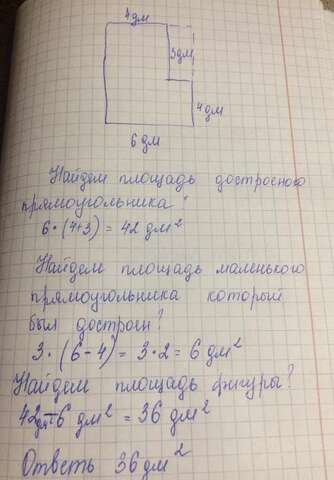 4дм
3дм
4дм
6 дм
Найдем площадь достроеного
прямоугольника?
6 • (4+3) = 42 дм²
Найдем площадь маленького
прямоугольника который
был достроен?
3 • (6-4) = 3•2 = 6 дм²
Найдем площадь фигуры?
42дм²-6 дм² = 36 дм²
Ответь 36дм²